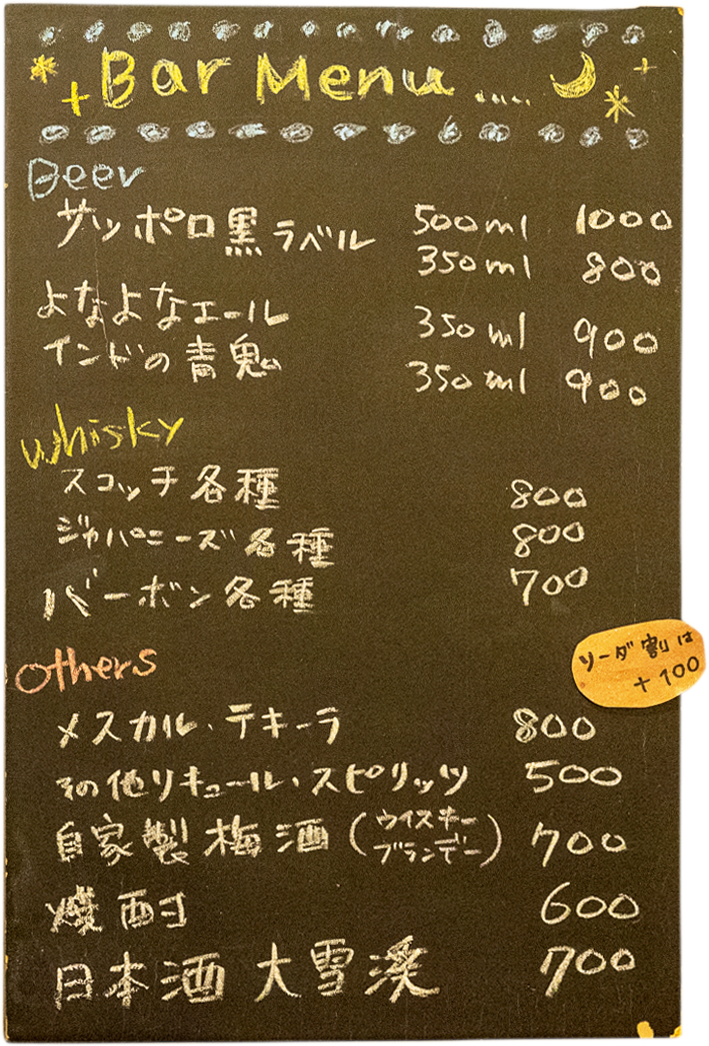 Bar Menu .....
Beer
サッポロ黒ラベル 500ml 1000
350ml 800
よなよなエール 350ml 900
インドの青鬼 350ml 900
Whisky
スコッチ各種 800
ジャパニーズ各種 800
バーボン各種 700
Others
ソーダ割は
+100
メスカル・テキーラ 800
その他リキュール・スピリッツ 500
自家製梅酒(ウイスキー ブランデー) 700
焼酎 600
日本酒 大雪渓 700